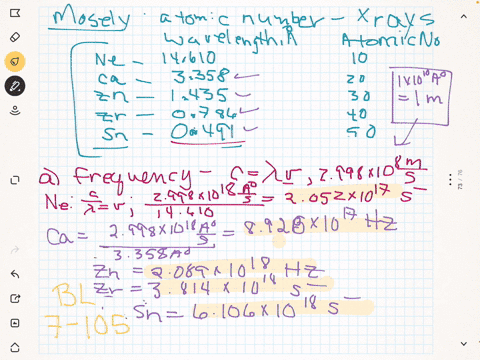 Mosely: atomic number - Xrays
wavelength, Å Atomic No
Ne - 14.610 10
Ca - 3.358 20
Zn - 1.435 30
Zr - 0.786 40
Sn - 0.491 50
1x10^10 A°
= 1 m
a) Frequency - C = λν, 2.998x10^8 m/s
Ne: c/λ = ν, 2.998x10^18 A°/s / 14.610 = 2.052x10^17 s^-
Ca = 2.998x10^18 A°/s / 3.358A° = 8.928x10^17 Hz
Zn = 2.089x10^18 Hz
Zr = 3.814x10^18 s^-
Sn = 6.106x10^18 s^-
BL
7-105